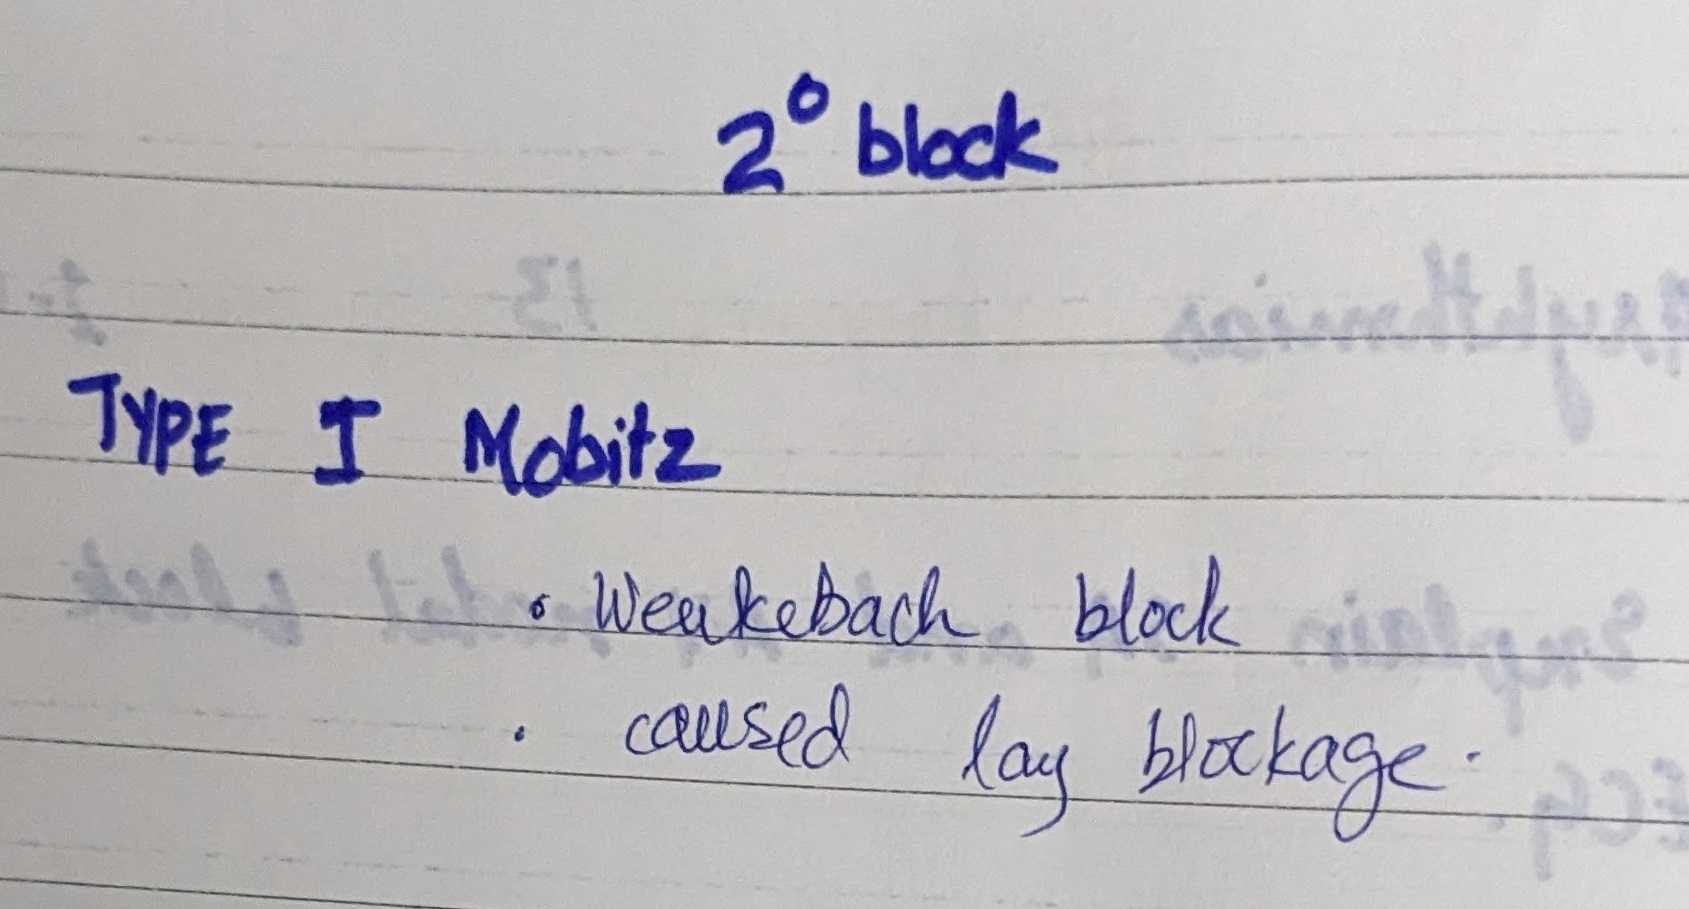 2° block
TYPE I Mobitz
• Weakebach block
• caused lay blockage.